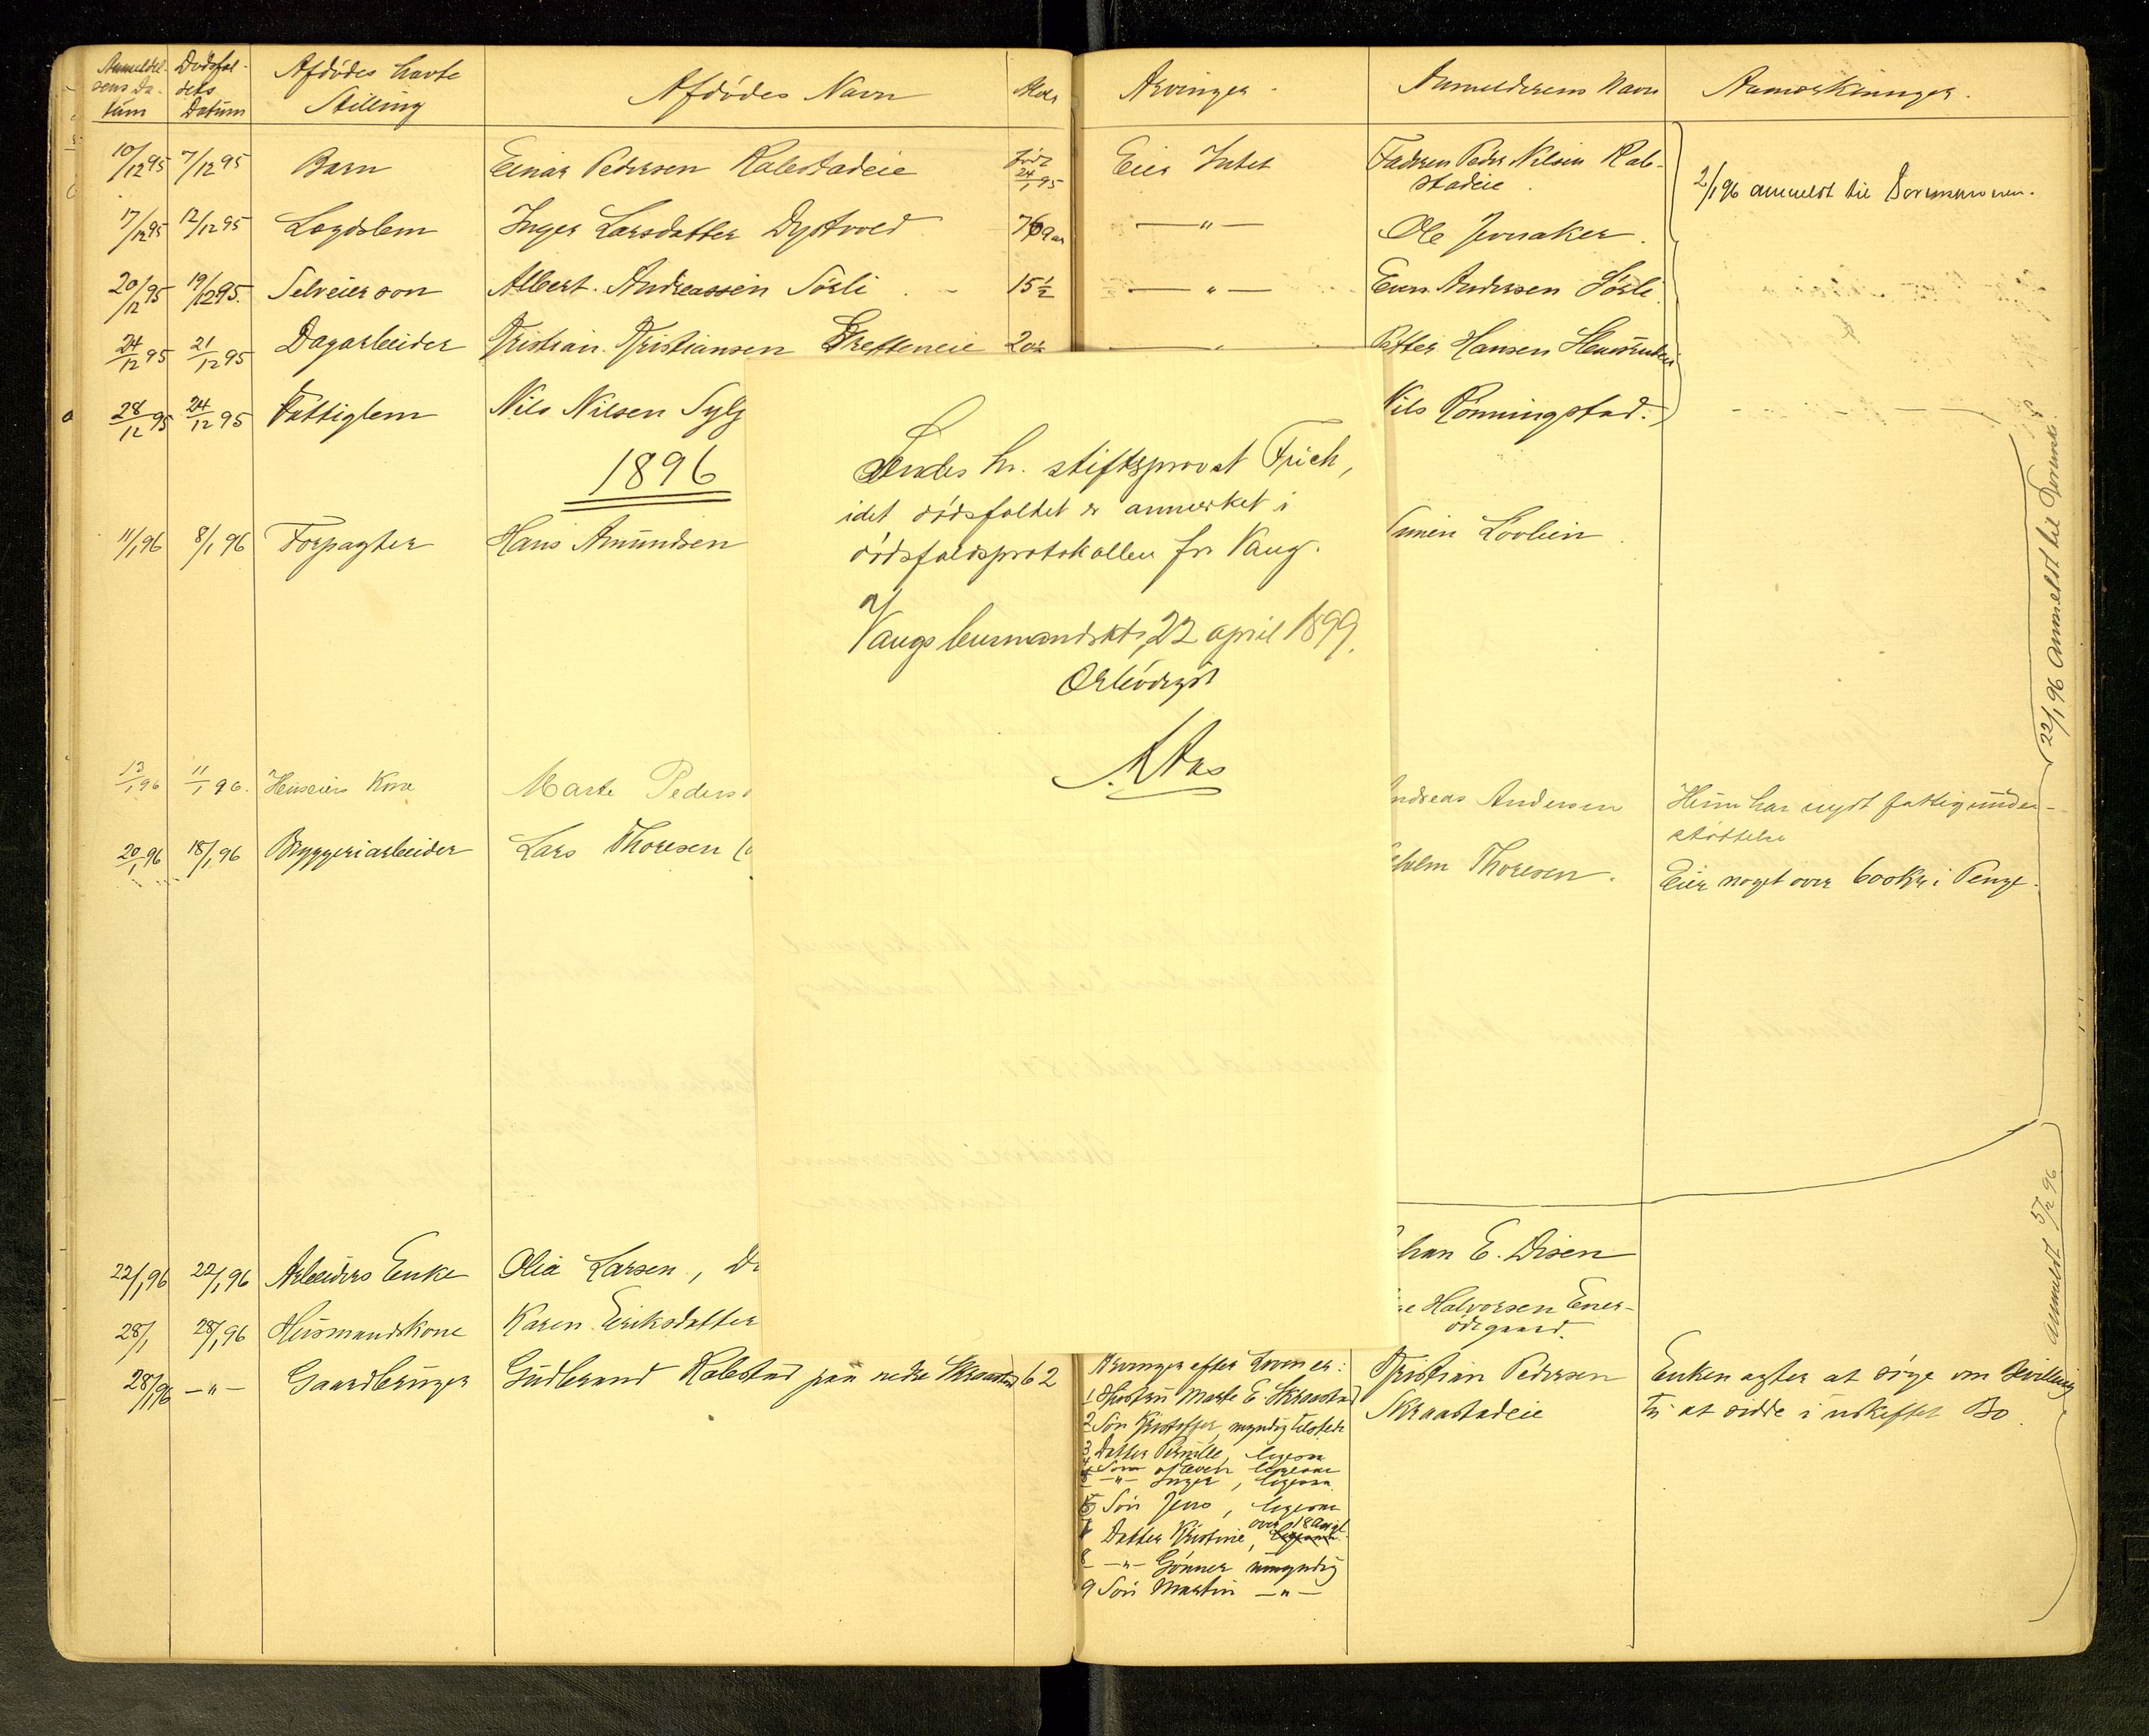 Anmeldel-
sens Da-
tum
Dødsfal-
dets
Datum
Afdødes havte
Stilling
Afdødes Navn
Alder
Arvinger.
Anmelderens Navn
Anmærkninger.
10/12 95 7/12 95 Barn Einar Pedersen Rabstadeie født 24/1 95 Eier Intet Faderen Peder Nilsen Rab-
stadeie.
2/1 96 anmeldt til Sorenskriveren.
17/12 95 12/12 95 Lægdslem Inger Larsdatter Dystvold 76 aar —"— Ole Jønsaker.
20/12 95 19/12 95. Selveiersøn Albert Andreassen Sørli 15½ —"— Even Andersen Sørli.
24/12 95 21/12 95 Dagarbeider Kristian Kristiansen 20½ Petter Hansen
28/12 95 24/12 95 Fattiglem Nils Nilsen Nils Rønningstad.
1896
11/1 96 8/1 96 Forpagter Hans Amundsen Løvlien
13/1 96 11/1 96. Huseiers Kone Marte Peders Andreas Andersen Hun har nydt fattigunder-
støttelse
20/1 96 18/1 96 Bryggeriarbeider Lars Thoresen Thoresen. Eier noget over 600 Kr i Penge.
22/1 96 anmeldt til Sorenskr.
Sendes hr. stiftsprovst Frich,
idet dødsfaldet er anmerket i
dødsfaldsprotokollen for Vang.
Vangs lensmandskt, 22 april 1899.
Ærbødigst
22/1 96 22/1 96 Arbeiders Enke Olia Larsen, E. Disen
28/1 28/1 96 Husmandskone Karen Eriksdatter Halvorsen Ener-
ødegaard.
28/1 96 —"— Gaardbruger Gudbrand Rabstad paa nedre Skraastad 62
Arvinger efter Loven er:
1 Hustru Marte E. Skraastad
2 Søn Kristoffer, myndig tilstede
3 Datter Pernille, ligesaa
—"— Inger, ligesaa
Søn Jens, ligesaa
Datter Kristine, over 18 Aar gl.
8 —"— Gunner umyndig
9 Søn Martin —"—
Kristian Pedersen
Skraastadeie
Enken agter at søge om Bevilling
til at sidde i uskiftet Bo.
anmeldt 5/2 96